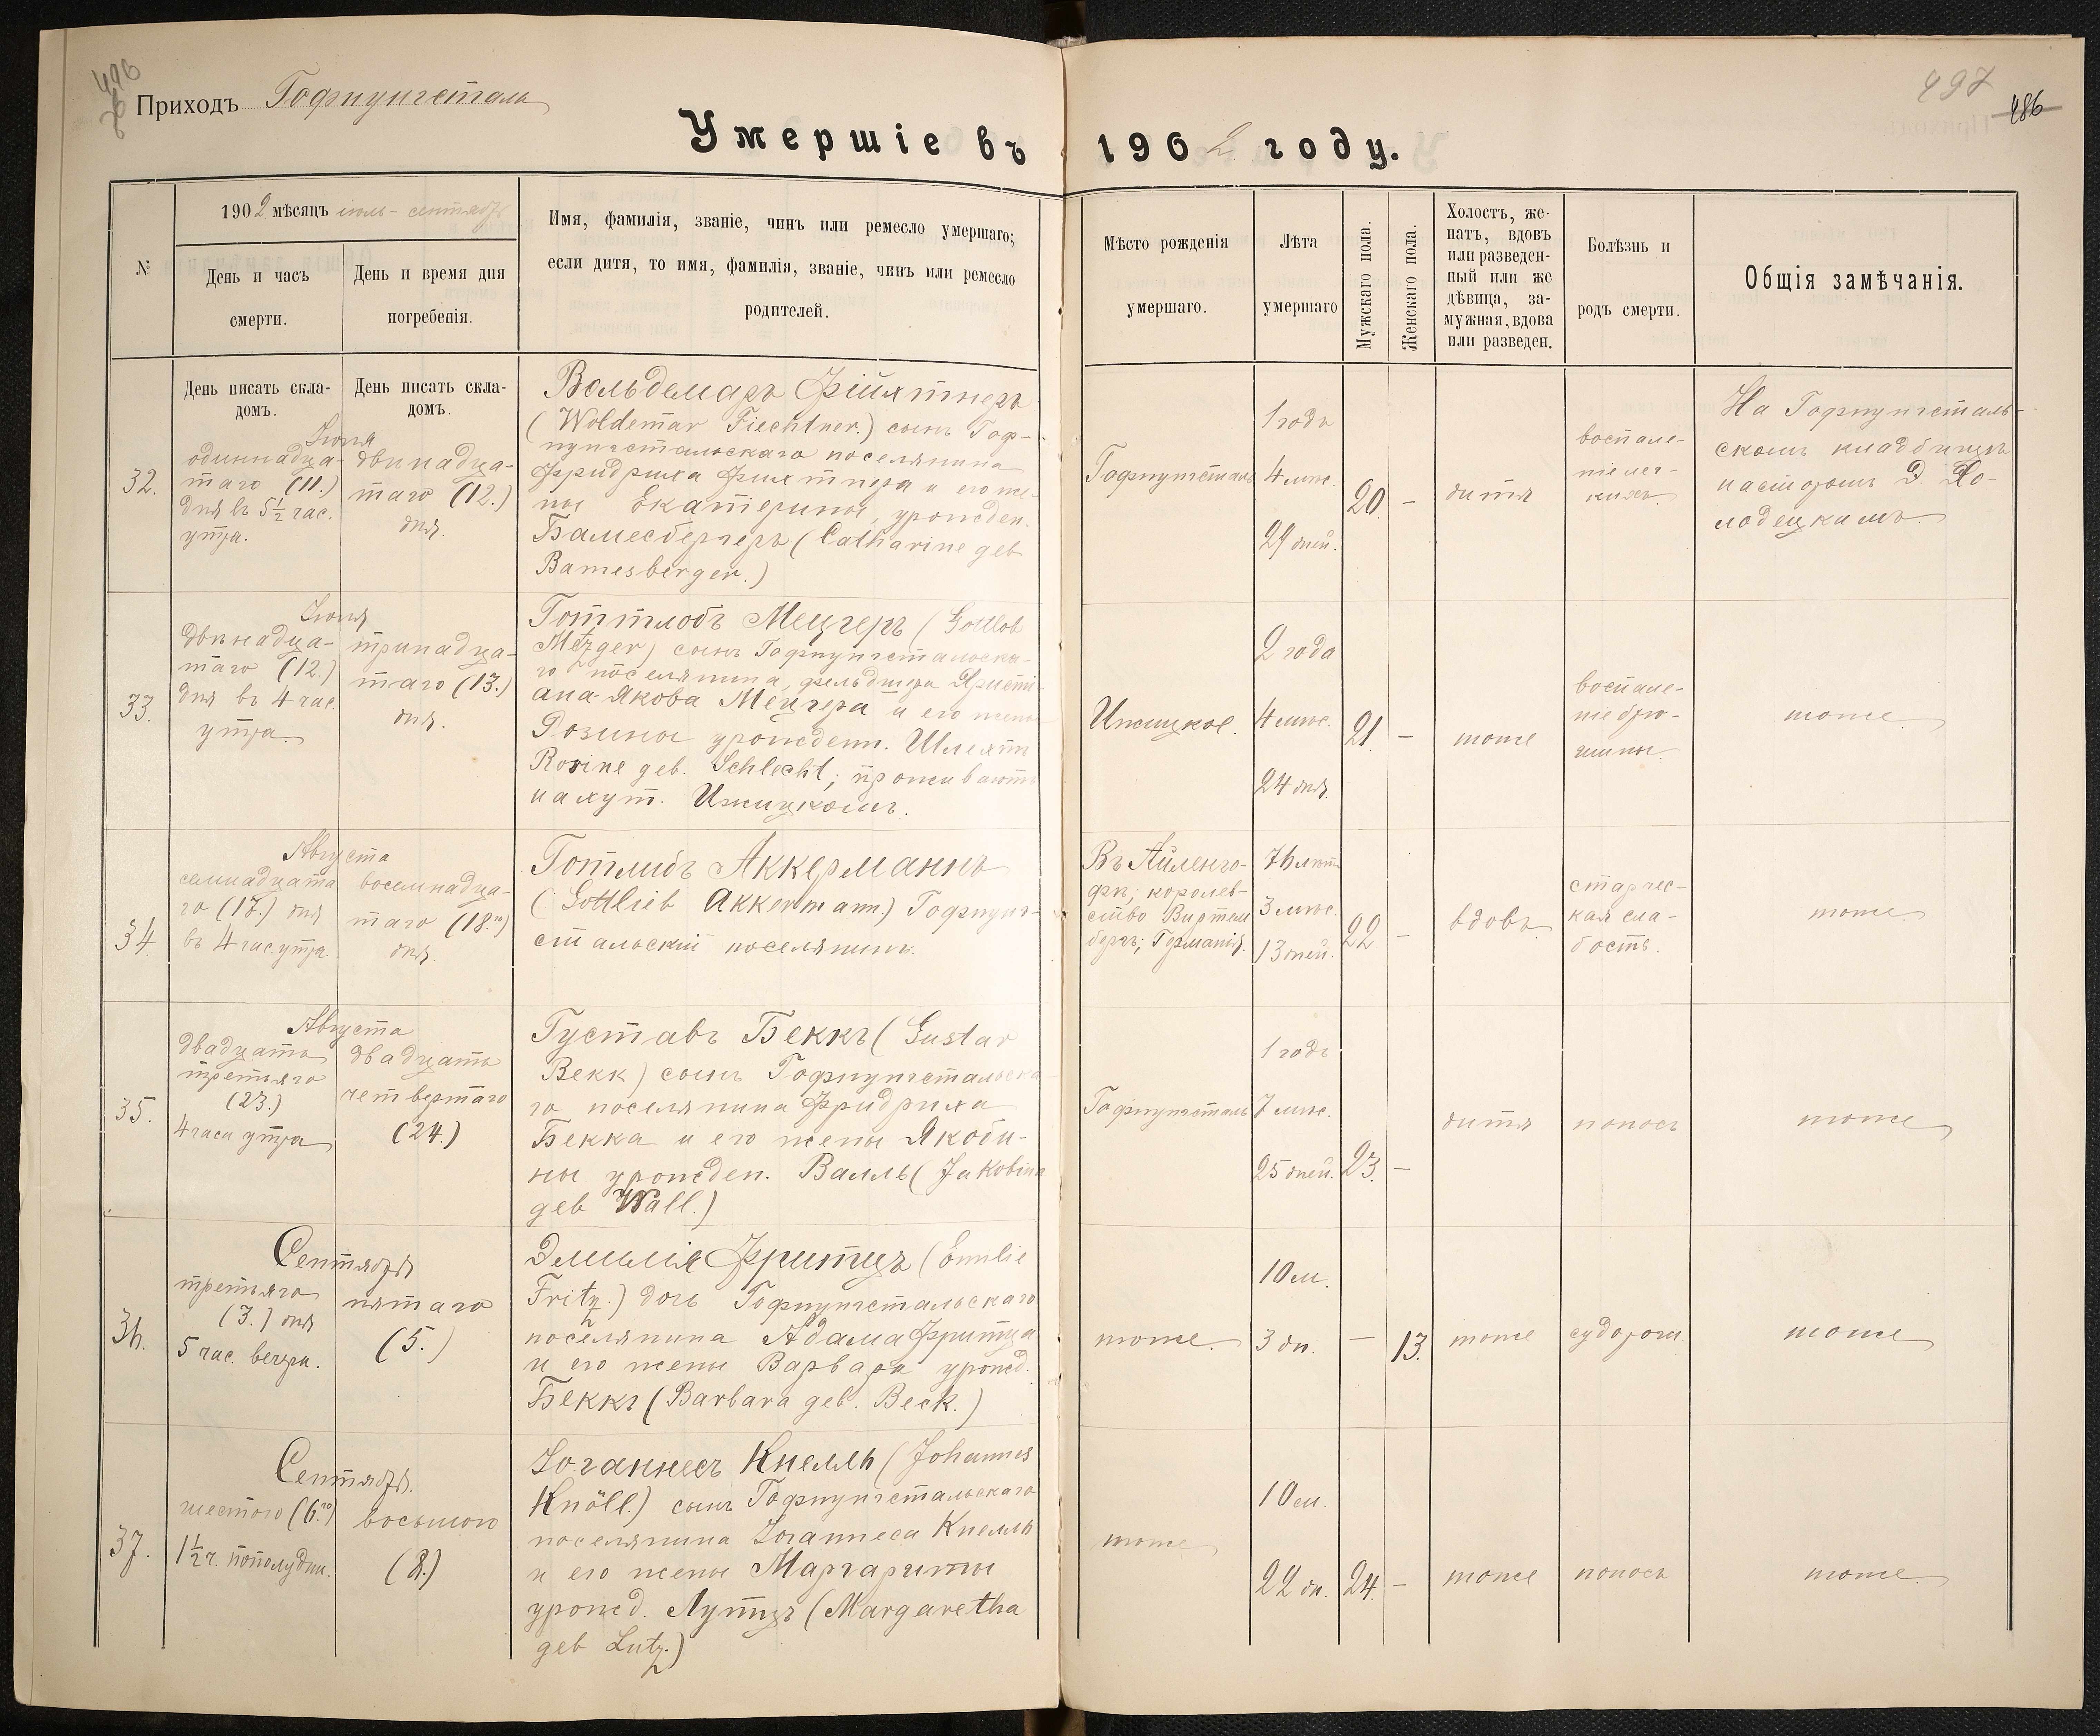 496
Приходъ Гофнунгсталь
497
486
Умершіе въ 1902 году.
№
1902 мѣсяцъ іюль - сентябрь
День и часъ смерти.
День и время дня погребенія.
Имя, фамилія, званіе, чинъ или ремесло умершаго;
если дитя, то имя, фамилія, званіе, чинъ или ремесло
родителей.
Мѣсто рожденія
умершаго.
Лѣта
умершаго
Мужскаго пола.
Женскаго пола.
Холостъ, же-
натъ, вдовъ
или разведен-
ный или же
дѣвица, за-
мужная, вдова
или разведен.
Болѣзнь и
родъ смерти.
Общія замѣчанія.
День писать скла-
домъ.
День писать скла-
домъ.
32.
одиннадца-
таго (11.)
дня въ 5½ час.
утра.
двѣнадца-
таго (12.)
дня.
Вольдемаръ Фійхтнеръ
(Woldemar Fiechtner.) сынъ Гоф-
нунгстальскаго поселянина
Фридриха Фихтнера и его же-
ны Екатерины, урожден.
Бамесбергеръ (Catharine geb
Bamesberger.)
Гофнунгсталь
1 годъ
4 мѣс.
29 дней.
20.
-
дитя
воспале-
ніе лег-
кихъ
На Гофнунгсталь-
скомъ кладбищѣ
пасторомъ Д.
33.
двѣнадца-
таго (12.)
дня въ 4 час.
утра.
тринадца-
таго (13.)
дня.
Готтлобъ Мецгеръ (Gottlob
Metzger) сынъ Гофнунгстальска-
го поселянина, фельдшера Христи-
ана-Якова Мецгера и его жены
Розины урожденн. Шлехтъ
Rosine geb. Schlecht; проживаютъ
на хут. Ижицкомъ.
Ижицкое.
2 года
4 мѣс.
24 дня.
21.
-
тоже
воспале-
ніе брю-
шины.
тоже
34.
Августа
семнадцата
го (17.) дня
въ 4 час. утра.
восемнадца-
таго (18.го)
дня.
Готлибъ Аккерманнъ
(Gottlieb Akkermann.) Гофнунг-
стальскій поселянинъ.
Въ
фѣ, королев-
ство Виртем
бергъ; Германія.
76 лѣтъ
3 мѣс.
13 дней.
22.
-
вдовъ
старчес-
кая сла-
бость.
тоже
35.
Августа
двадцать
третьяго
(23.)
4 часа утра
двадцать
четвертаго
(24.)
Густавъ Беккъ (Gustav
Bekk) сынъ Гофнунгстальска-
го поселянина Фридриха
Бекка и его жены Якоби-
ны урожден. Валль (Jakobina
geb Wall.)
Гофнунгсталь
1 годъ
7 мѣс.
25 дней.
23.
-
дитя
поносъ
тоже
36.
Сентября
третьяго
(3.) дня
5 час. вечера.
пятаго
(5.)
Эмилія Фритцъ (Emilie
Fritz.) дочь Гофнунгстальскаго
поселянина Адама Фритца
и его жены Варвары урожд.
Беккъ (Barbara geb. Beck.)
тоже.
10 м.
3 дн.
-
13.
тоже
судороги
тоже
37.
Сентября.
шестого (6.го)
1½ ч. пополудни.
восьмого
(8.)
Іоганнесъ Кнелль (Johannes
Knöll.) сынъ Гофнунгстальскаго
поселянина Іоганнеса Кнелль
и его жены Маргариты
урожд. Лутцъ (Margaretha
geb Lutz.)
тоже
10 м.
22 дн.
24.
-
тоже
поносъ
тоже.